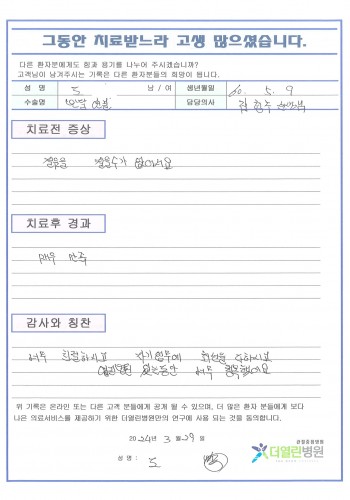 그동안 치료받느라 고생 많으셨습니다.
다른 환자분에게도 힘과 용기를 나누어 주시겠습니까?
고객님이 남겨주시는 기록은 다른 환자분들의 희망이 됩니다.
성 명 남 / 여 생년월일 60. 5. 9
수술명 담당의사
치료전 증상
걸음을 걸을수가 없어서요
치료후 경과
매우 만족
감사와 칭찬
너무 친절하시고 자기업무에 최선을 다하시고
있는동안 너무 행복했어요
위 기록은 온라인 또는 다른 고객 분들에게 공개 될 수 있으며, 더 많은 환자 분들에게 보다
나은 의료서비스를 제공하기 위한 더열린병원만의 연구에 사용 되는 것을 동의합니다.
2024년 3월 29일
성 명 :
관절중점병원
더열린병원